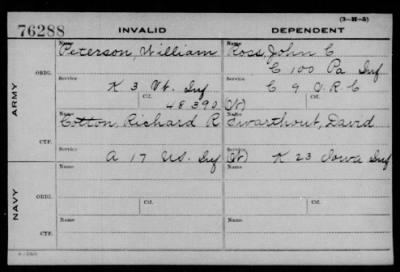 (3-31-5)
76288 INVALID DEPENDENT
Name Name
Peterson, William Ross, John C
C 100 Pa Inf
ORIG. Service Service
K 3 Vt. Inf C 9 V.R.C
ARMY Ctf. Ctf.
48390 (W)
Name Name
Cotton, Richard R Swarthout, David
CTF. Service Service
A 17 US. Inf (W) K 23 Iowa Inf
Name Name
ORIG. Ctf. Ctf.
NAVY
Name Name
CTF.